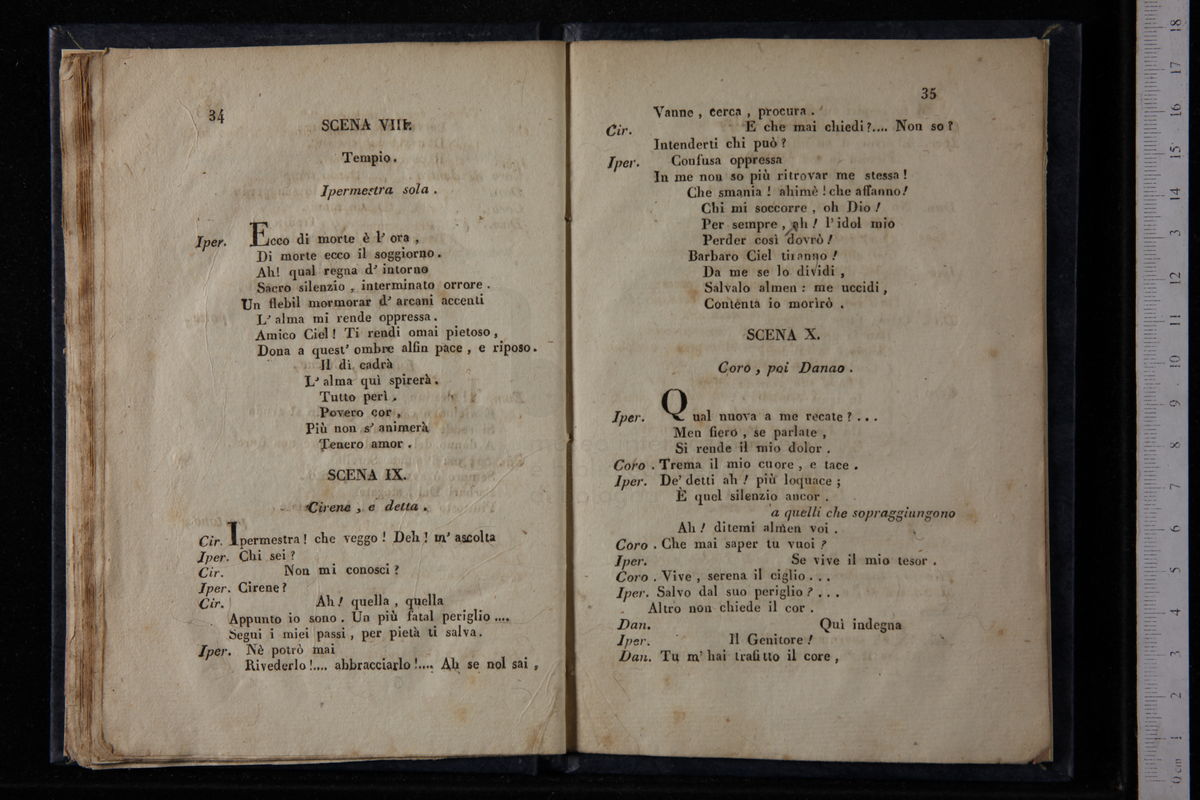 34
SCENA VIII.
Tempio.
Ipermestra sola.
Iper. Ecco di morte è l' ora,
Di morte ecco il soggiorno.
Ah! qual regna d' intorno
Sacro silenzio, interminato orrore.
Un flebil mormorar d' arcani accenti
L' alma mi rende oppressa.
Amico Ciel! Ti rendi omai pietoso,
Dona a quest' ombre alfin pace, e riposo.
Il dì cadrà
L' alma quì spirerà.
Tutto perì.
Povero cor,
Più non s' animerà
Tenero amor.
SCENA IX.
Cirene, e detta.
Cir. Ipermestra! che veggo! Deh! m' ascolta
Iper. Chi sei?
Cir. Non mi conosci?
Iper. Cirene?
Cir. Ah! quella, quella
Appunto io sono. Un più fatal periglio....
Segui i miei passi, per pietà ti salva.
Iper. Nè potrò mai
Rivederlo!.... abbracciarlo!.... Ah se nol sai,
35
Vanne, cerca, procura.
Cir. E che mai chiedi?.... Non so?
Intenderti chi può?
Iper. Confusa oppressa
In me non so più ritrovar me stessa!
Che smania! ahimè! che affanno!
Chi mi soccorre, oh Dio!
Per sempre, ah! l' idol mio
Perder così dovrò!
Barbaro Ciel tiranno!
Da me se lo dividi,
Salvalo almen: me uccidi,
Contenta io morirò.
SCENA X.
Coro, poi Danao.
Iper. Qual nuova a me recate?...
Men fiero, se parlate,
Si rende il mio dolor.
Coro. Trema il mio cuore, e tace.
Iper. De' detti ah! più loquace;
È quel silenzio ancor.
a quelli che sopraggiungono
Ah! ditemi almen voi.
Coro. Che mai saper tu vuoi?
Iper. Se vive il mio tesor.
Coro. Vive, serena il ciglio...
Iper. Salvo dal suo periglio?...
Altro non chiede il cor.
Dan. Quì indegna
Iper. Il Genitore!
Dan. Tu m' hai trafitto il core,
0 cm 1 2 3 4 5 6 7 8 9 10 11 12 13 14 15 16 17 18